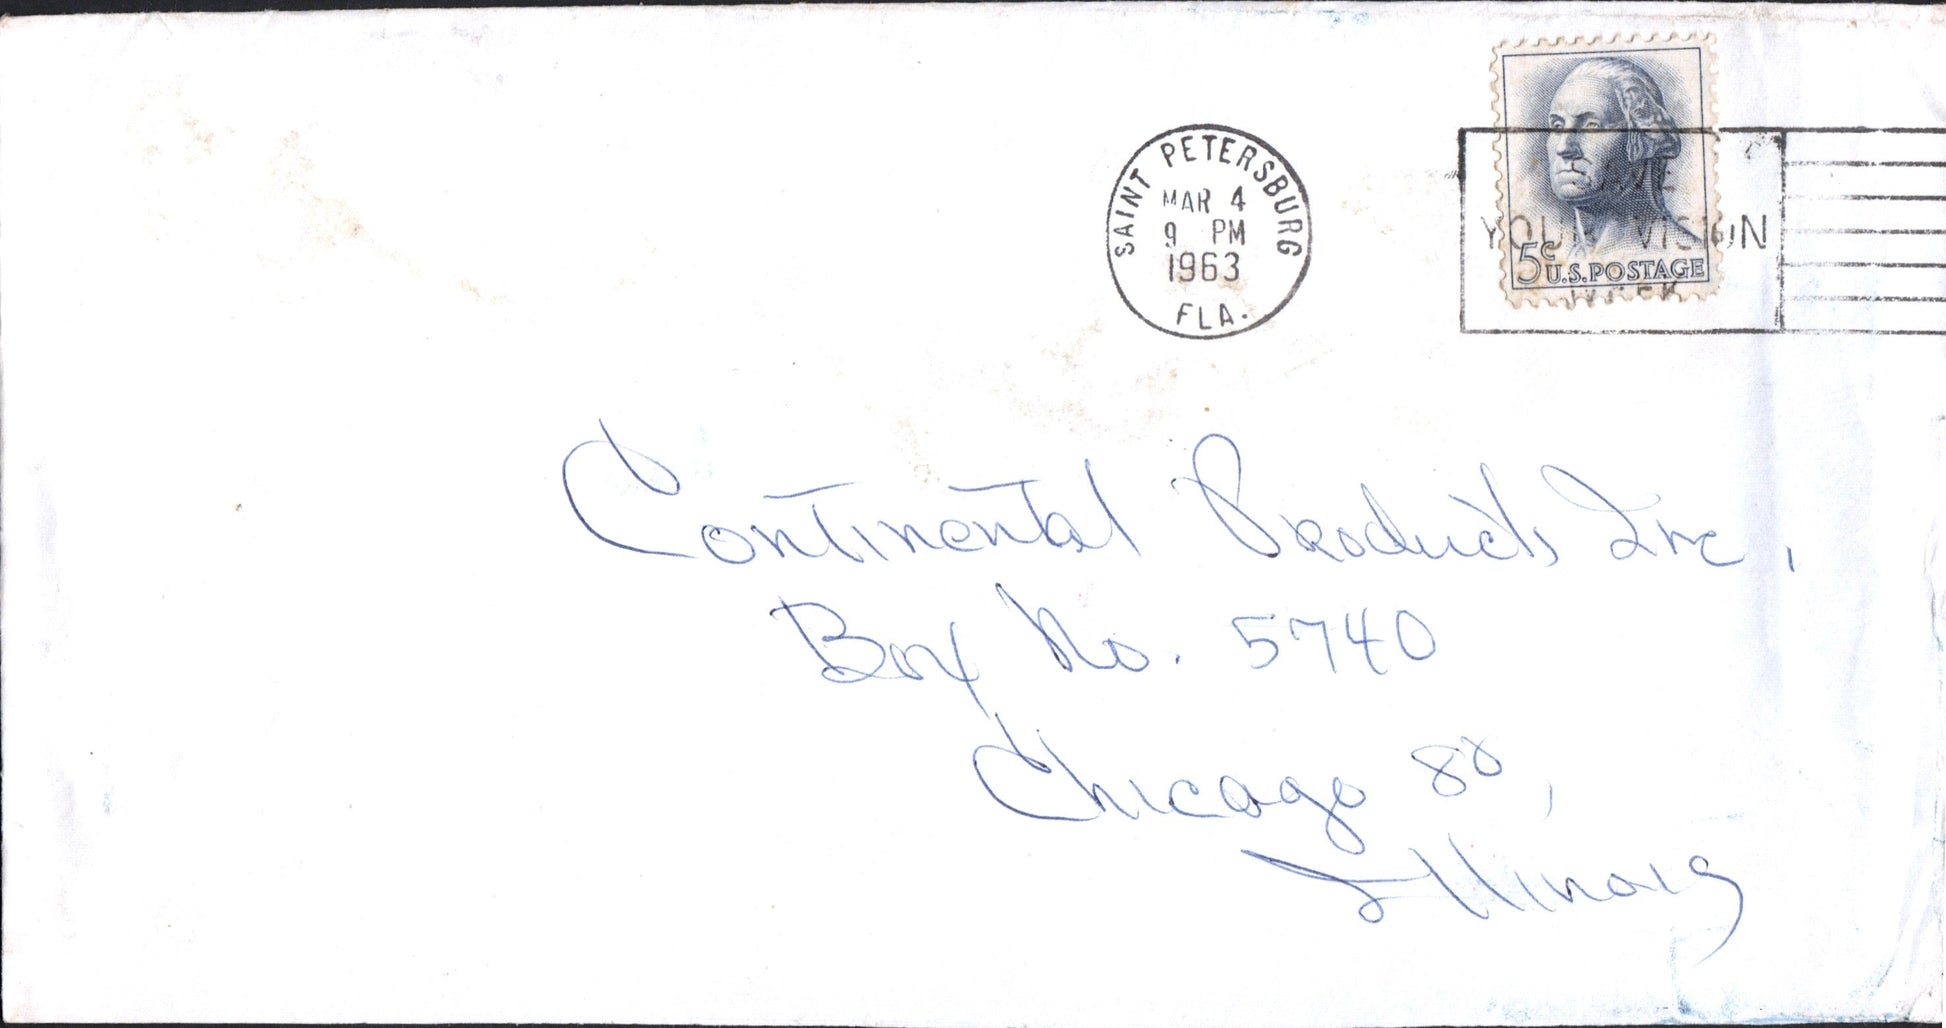 SAINT PETERSBURG
MAR 4
9 PM
1963
FLA.
SAVE
YOUR VISION
WEEK
5c U.S. POSTAGE
Continental Products Inc,
Box No. 5740
Chicago 80,
Illinois